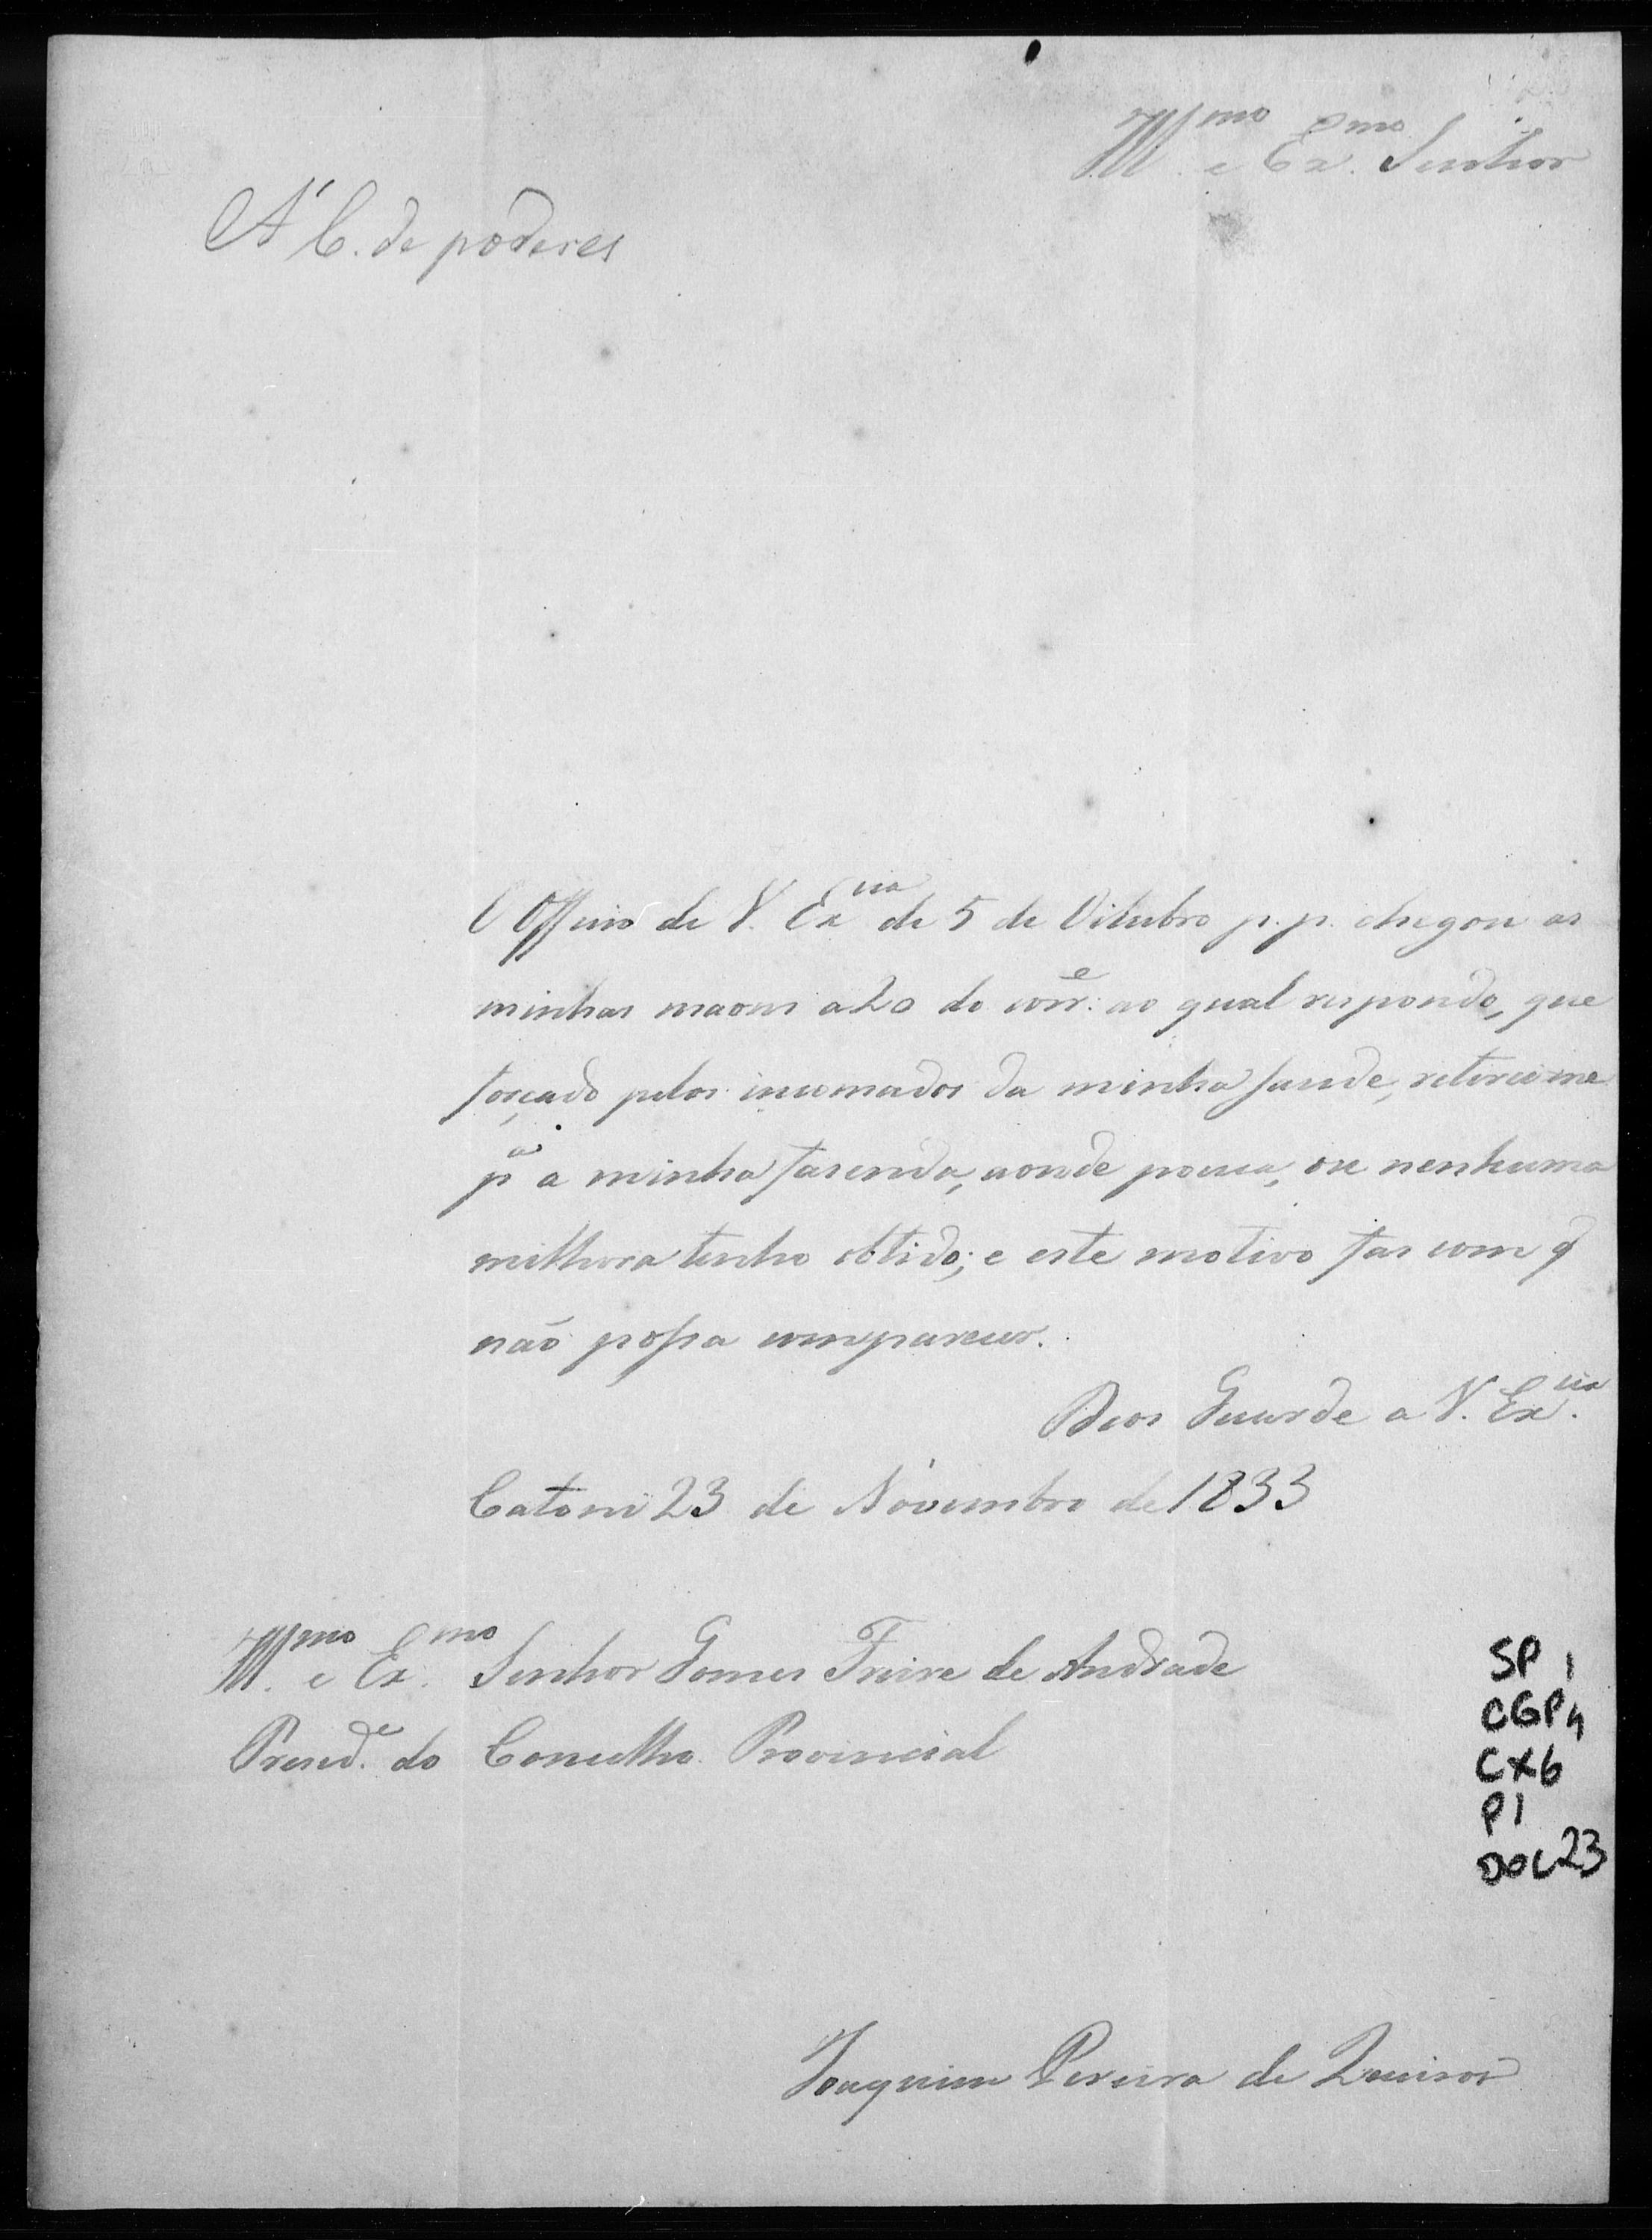 Ill.mo e Ex.mo Senhor
A' C. de poderes
O Officio de V. Ex.cia de 5 de Oitubro p. p. chegou as
minhas maons a 20 do corr.e ao qual respondo, que
forçado pelos incomodos da minha saude, retireime
p.a a minha fasenda, aonde pouca, ou nenhuma
milhora tenho obtido; e este motivo fas com q
não possa comparecer.
Deos Guarde a V. Ex.cia
Catoni 23 de Novembro de 1833
Ill.mo e Ex.mo Senhor Gomes Freire de Andrade
Presid.e do Conselho Provincial
SP 1
CGP4
CX6
P1
DOC 23
Joaquim Pereira de Queiros